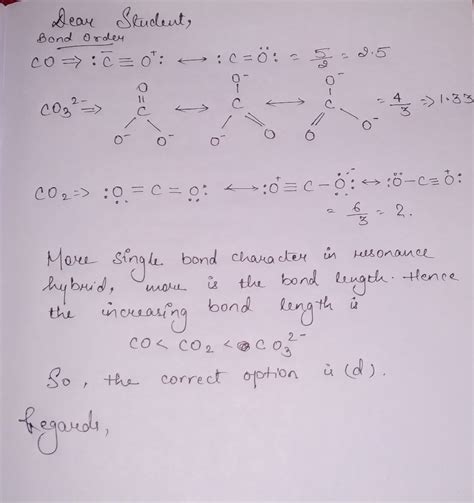 Dear Student,
Bond Order
CO ⇒ :C̄ ≡ O⁺: ⟷ :C = Ö: = 5/2 = 2.5
CO₃²⁻ ⇒ O = C (O⁻) O⁻ ⟷ O⁻ C O⁻ O ⟷ O⁻ C O O⁻ = 4/3 ⇒ 1.33
CO₂ ⇒ :O = C = O: ⟷ :O⁺ ≡ C – Ö:⁻ ⟷ :Ö – C ≡ O⁺:
= 6/3 = 2.
More single bond character in resonance
hybrid, more is the bond length. Hence
the increasing bond length is
CO < CO₂ < CO₃²⁻
So, the correct option is (d).
Regards,